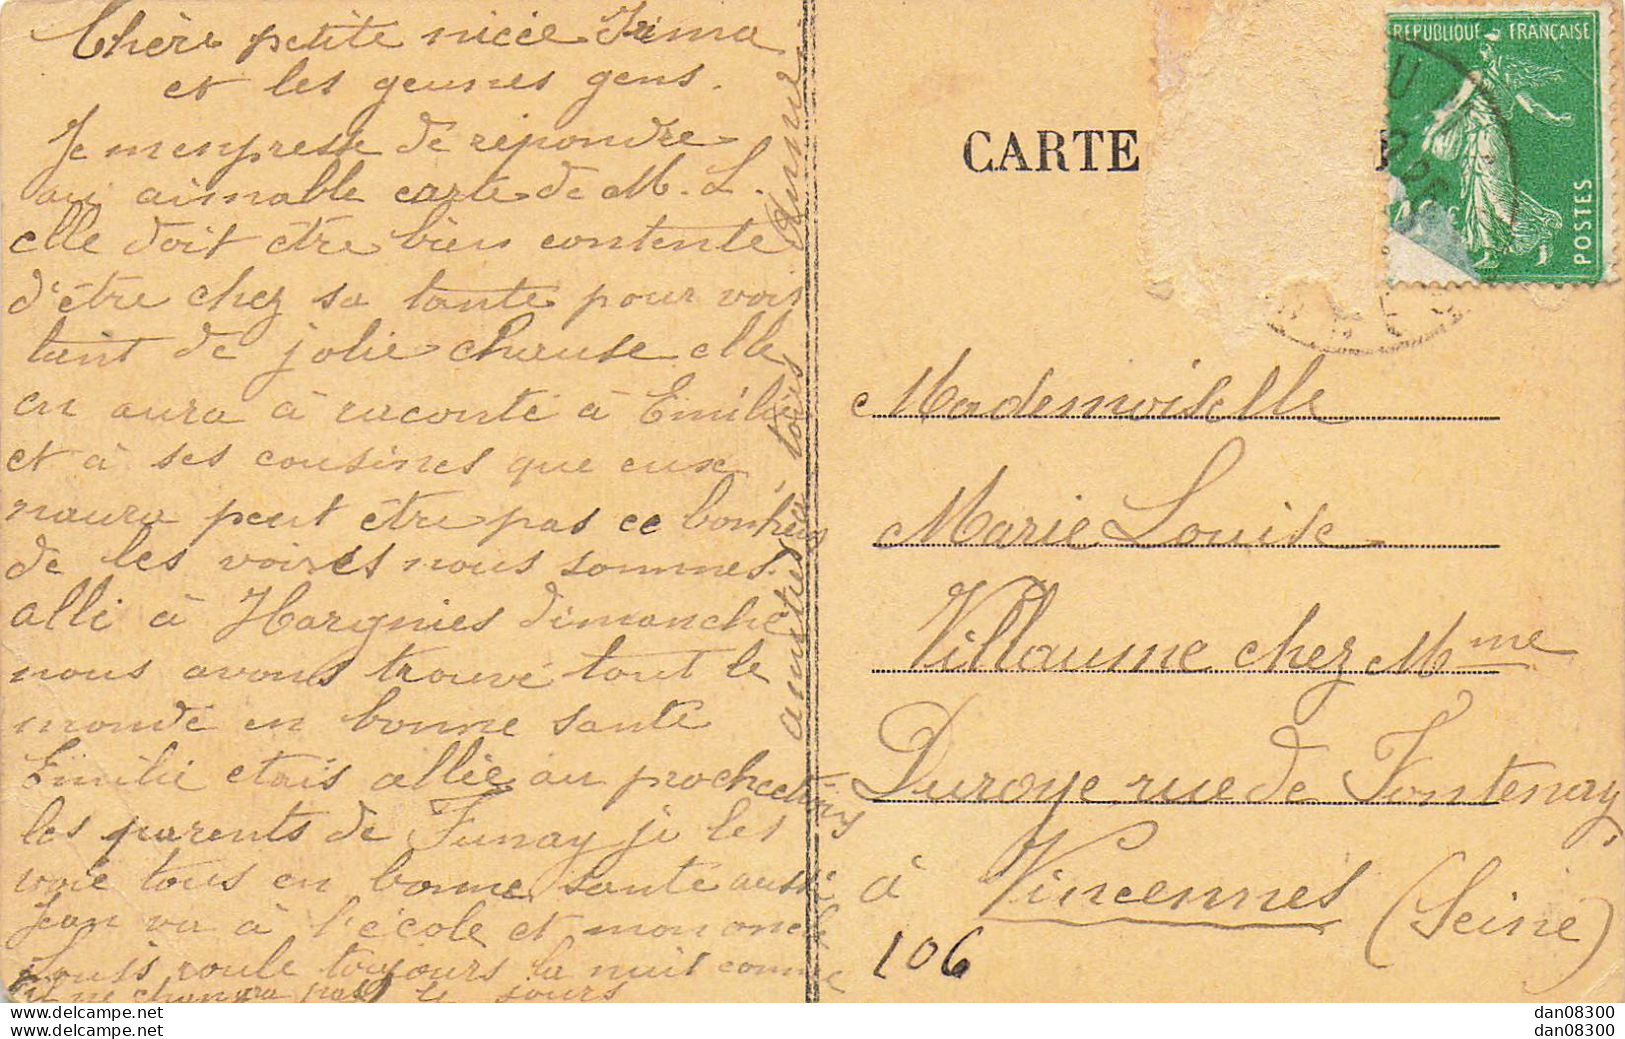 Chère petite nicée Irma
et les geunes gens.
Je menpresse de répondre
au aimable carte de M. L.
elle doit être bien contente
d'être chez sa tante pour voir
tant de jolie chause elle
en aura à raconté à Emilie
et à ses cousines que eux
naura peut être pas ce bonheur
de les voires nous sommes
alli à Hargnies dimanche
nous avons trouvé tout le
monde en bonne santé
Emilie etais allée au
les parents de Fumay je les
voie tous en bonne sante aussi
Jean va à l'école et mon oncle
Louis roule toujours la nuit comme
le jours
amities à tous
CARTE
REPUBLIQUE FRANÇAISE
POSTES
Mademoiselle
Marie Louise
Villaume chez Mme
Duroye rue de Fontenay
à Vincennes (Seine)
106
dan08300
dan08300
dan08300
dan08300